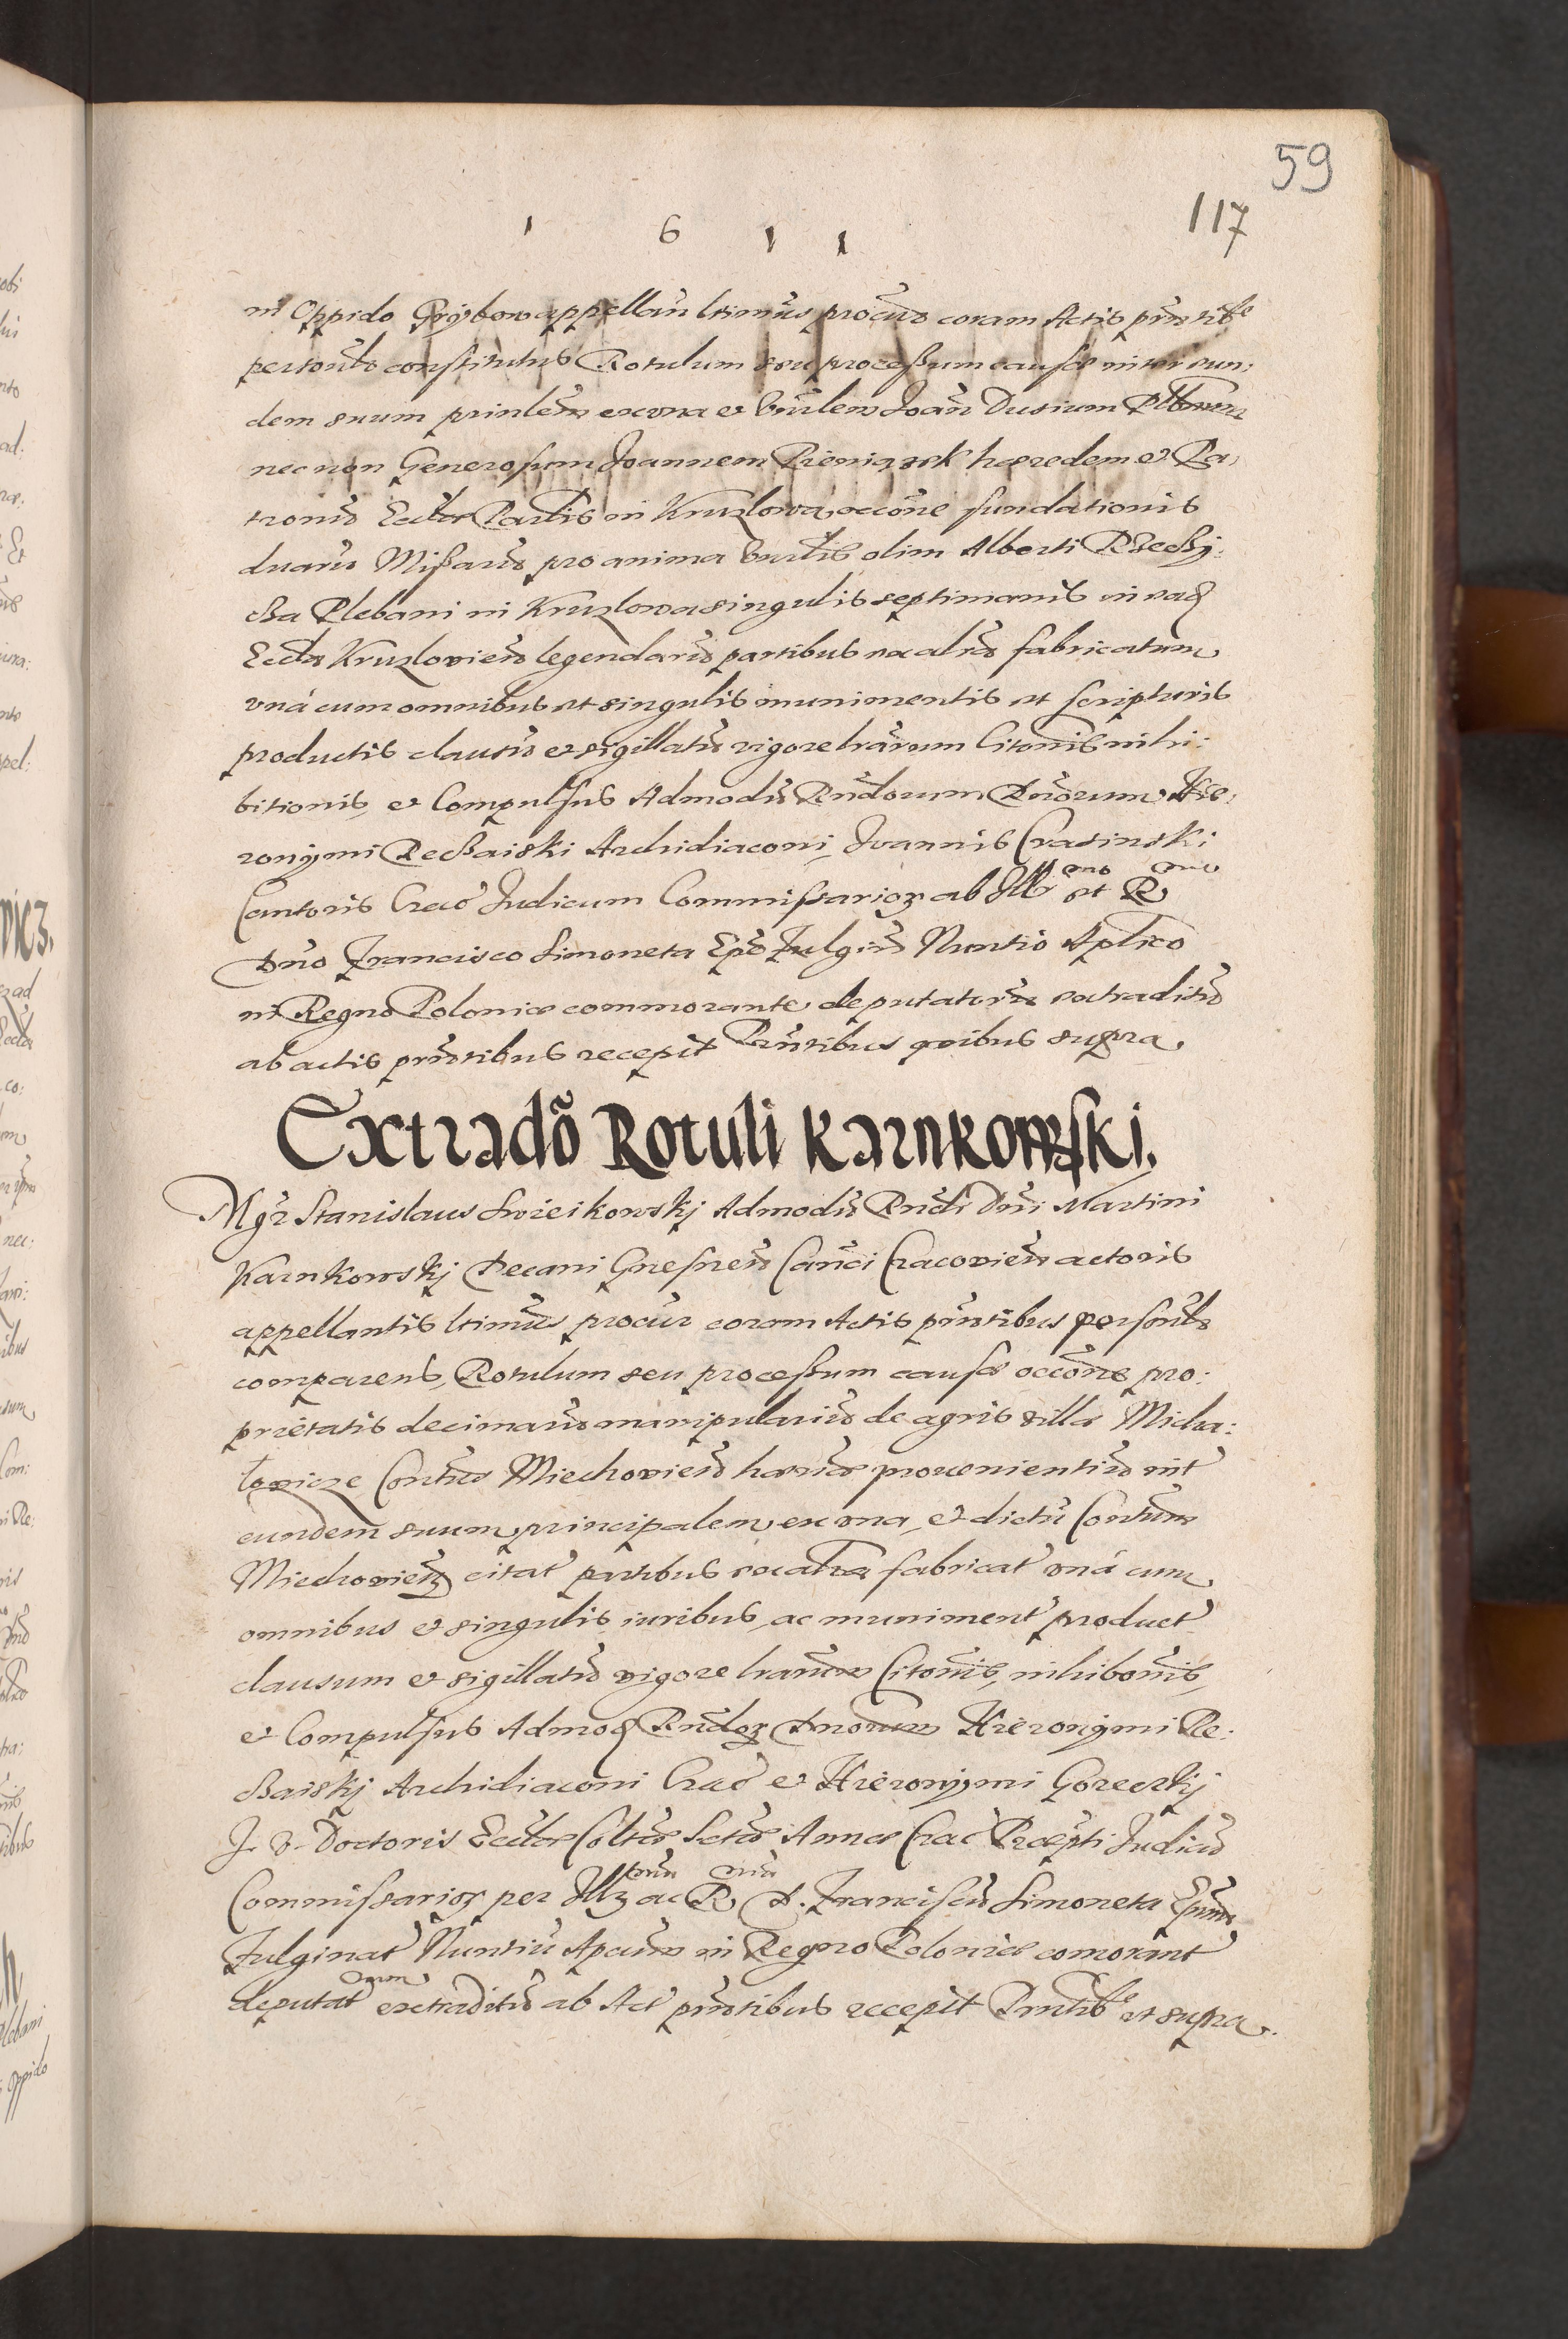 59
117
1 6 1 1
in Oppido Grybow appellan ltimus procur coram Actis pntibs
personlr constitutus Rotulum seu processum causæ inter eun:
dem suum prinlem ex vna et Vnlem Joan Dusium Plbnum
nec non Generosum Joannem Pieniązek hæredem et Pa,
tronum Eccliæ Parlis in Kruzlowa, occone fundationis
duarum Missarum pro anima Vnlis olim Alberti
Plebani in Kruzlowa singulis septimanis in ead
Eccla Kruzlovien legendarum partibus ex alia fabricatum
vná cum omnibus et singulis munimentis et scripturis
productis clausum et sigillatum vigore lrarum Citonis inhi:
bitionis, et Compulsus Admodum Rndorum Dnorum Hie:
ronymi Reszaiski Archidiaconi, Joannis Crasinski
Cantoris Crac Judicum Commissarior ab Illmo et Rmo
Dno Francisco Simoneta Epo Fulgin Nuntio Aplico
in Regno Poloniæ commorante deputatorum extraditum
ab actis pntibus recepit Pntibus quibus supra
Extrado Rotuli Karnkowski.
Mgr Stanislaus Swieikowskj Admodum Rndi Dni Martini
Karnkowskj Decani Gnesnen Canci Cracovien actoris
appellantis ltimus procur coram Actis pntibus personlr
comparens, Rotulum seu processum causæ occone pro:
prietatis decimarum manipularium de agris villæ Micha:
lowicze Contus Miechovien hæriæ provenientium int
eundem suum principalem ex vna, et dictum Contum
Miechovien citat partibus ex altra fabricat vná cum
omnibus et singulis iuribus, ac muniment product
clausum et sigillatum vigore lrarum Citonis, inhibonis,
et Compulsus Admod Rndor Dnorum Hieronymi Re:
szaiskj Archidiaconi Crac et Hieronymi Goreczkj
J. V. Doctoris Eccliæ Coltæ Sctæ Annæ Crac Præpti Judicum
Commissarior per Illmum ac Rmum D. Franciscum Simoneta Epum
Fulginat Nuntium Apcum in Regno Poloniæ comorant
deputatorum extraditum ab Act pntibus recepit Pntibs vt supra.